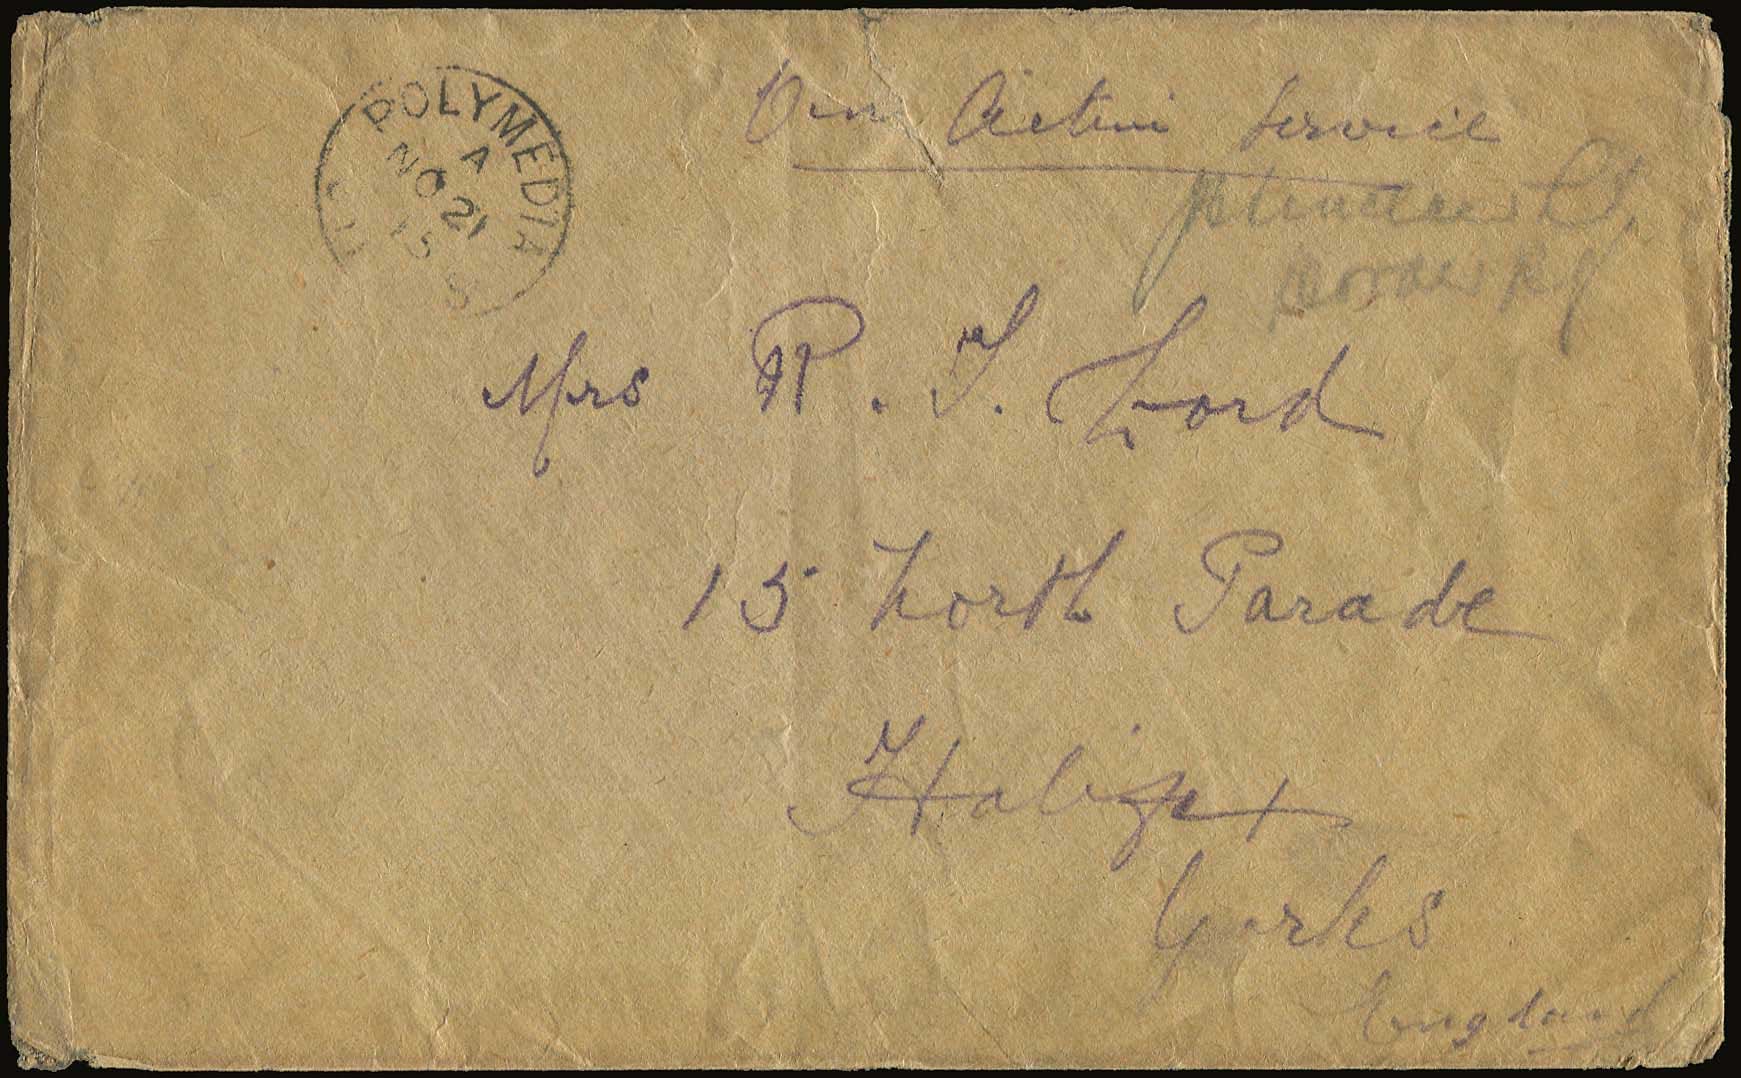 POLYMEDIA
A
NO 21
15
On Active Service
Lt.
Border Rgt
Mrs R. T. Lord
15 North Parade
Halifax
Yorks
England